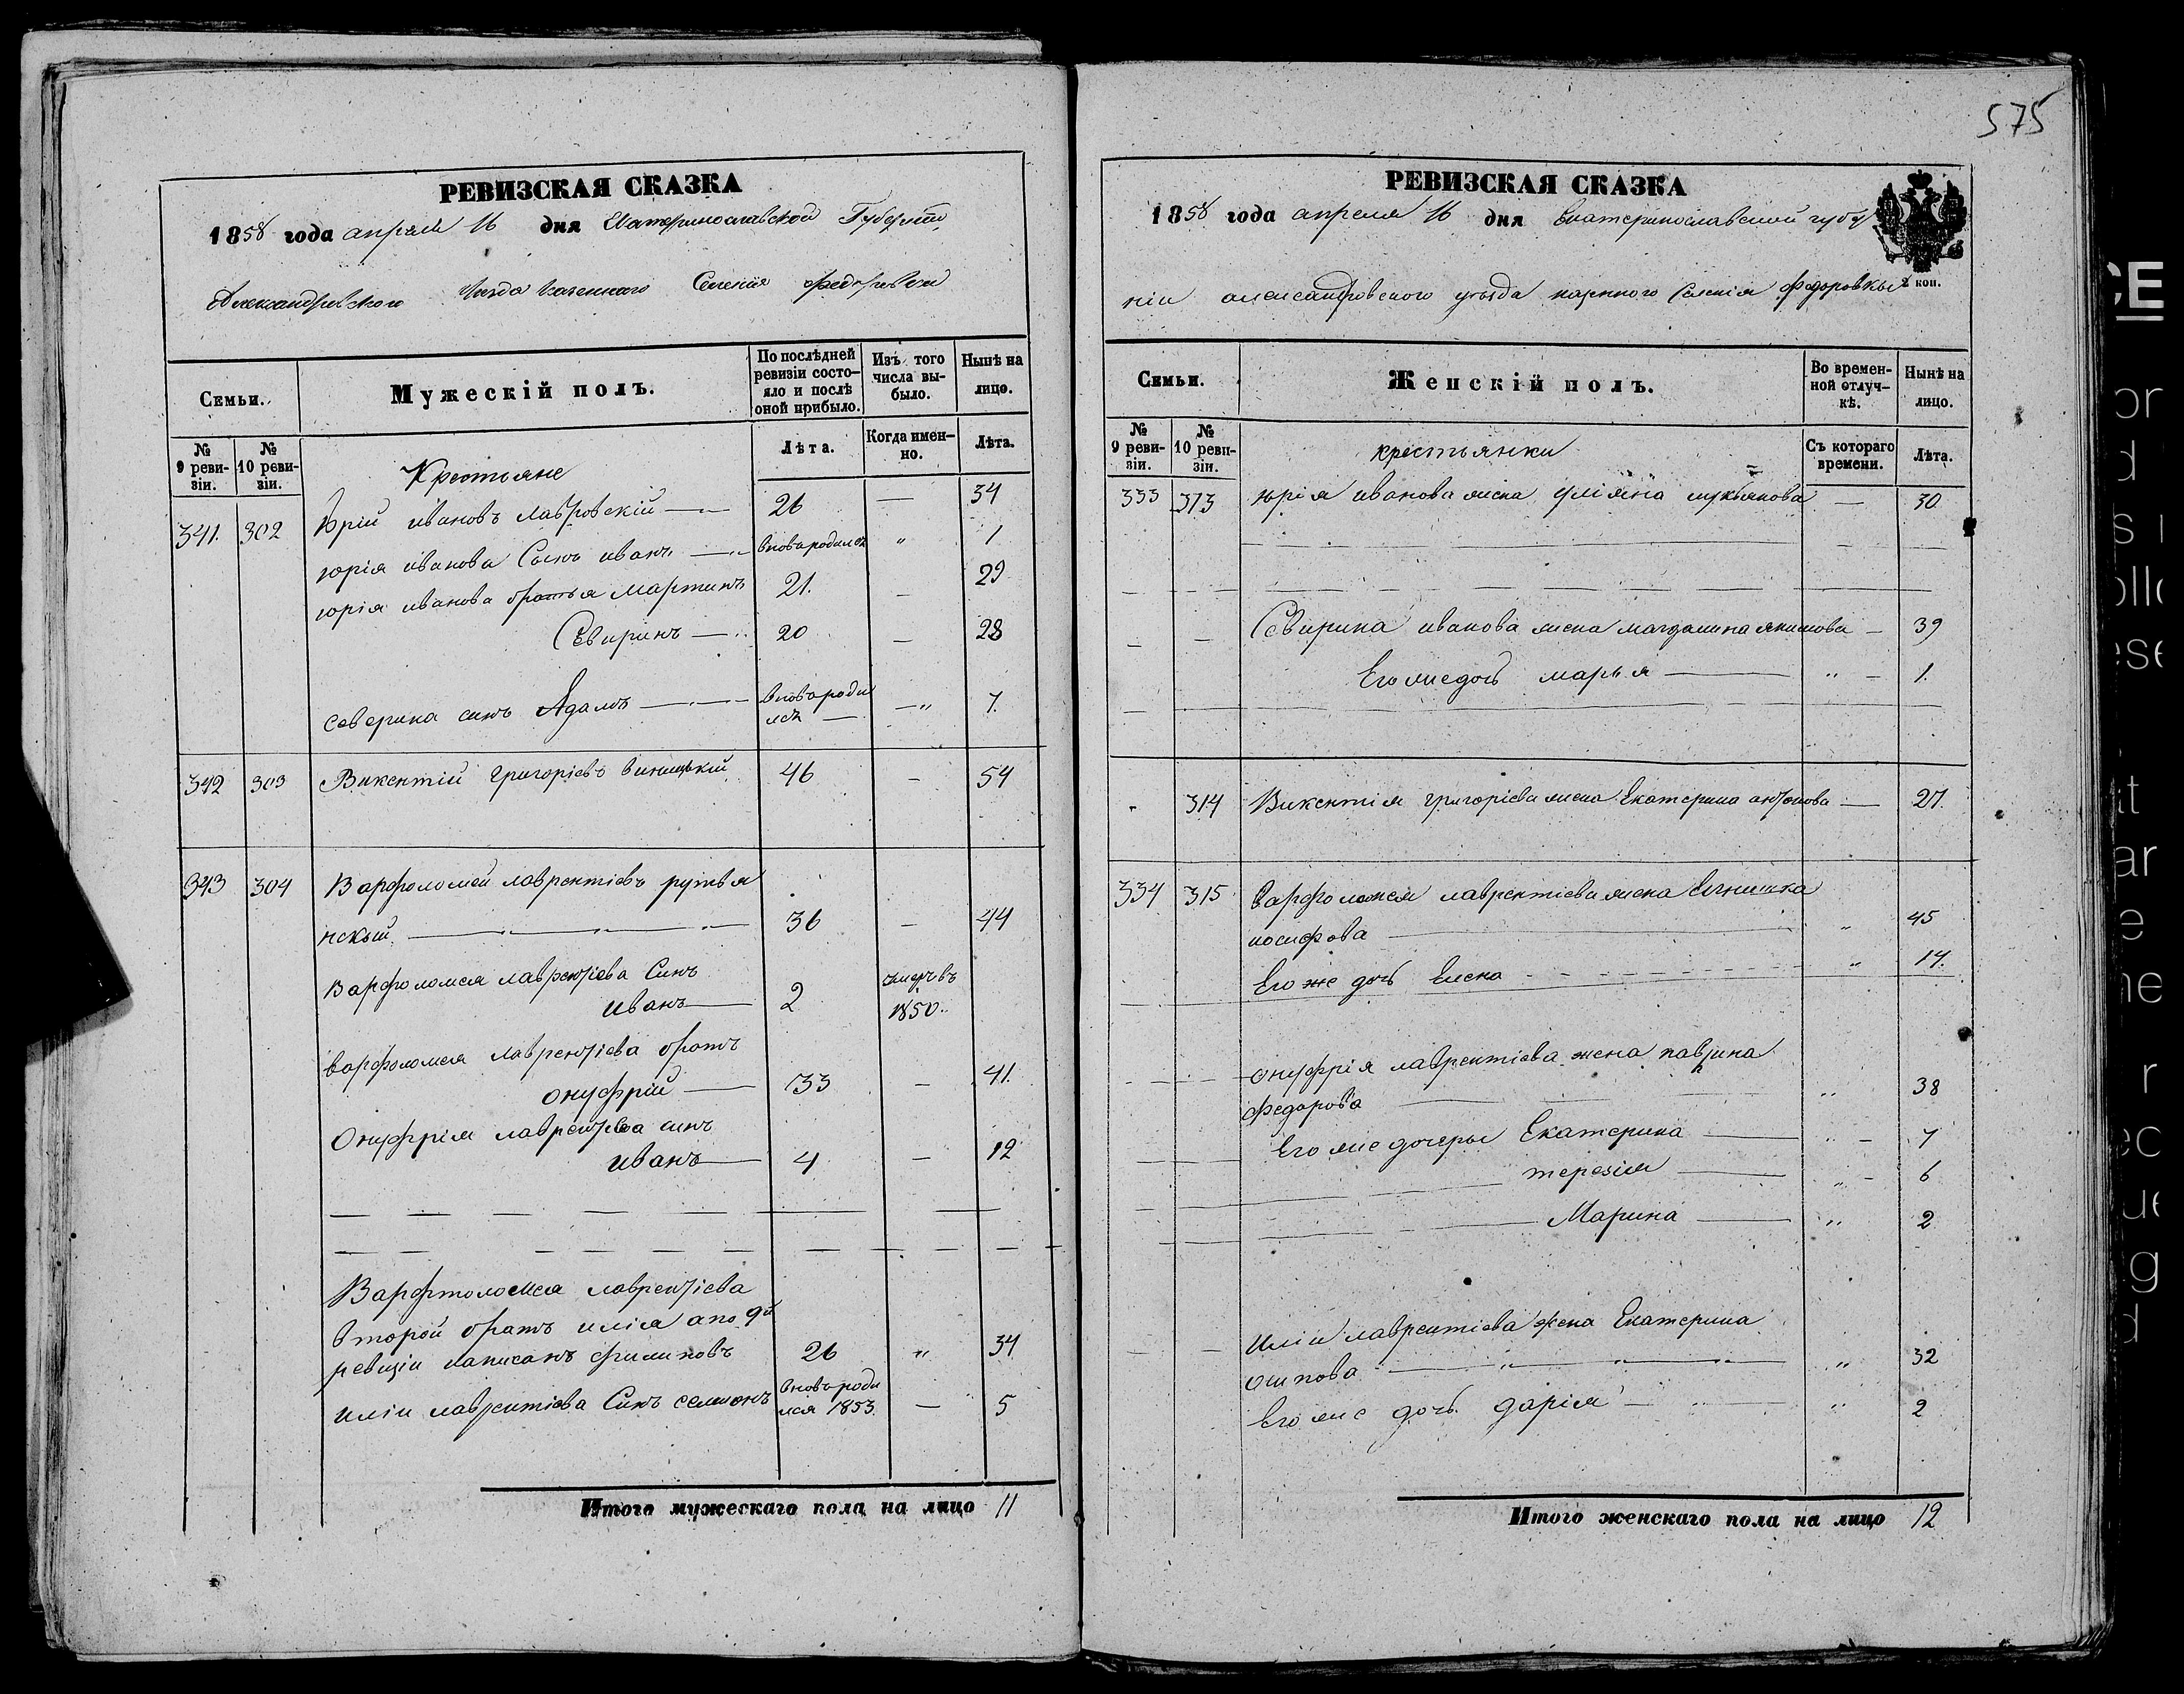 РЕВИЗСКАЯ СКАЗКА
1858 года апреля 16 дня Екатеринославской Губерніи
Александровского уезда казенного Селенія Федоровки
Семьи.
Мужескій полъ.
По послѣдней ревизіи состояло и послѣ оной прибыло.
Изъ того числа выбыло.
Нынѣ на лицо.
№ 9 ревизіи.
№ 10 ревизіи.
Лѣта.
Когда именно.
Лѣта.
Крестьяне
341. 302 Юрій ивановъ Лавровскій 26 — 34
юрія иванова Сынъ иванъ вновародился " 1
юрія иванова братья Мартинъ 21. — 29
Севиринъ 20 — 28
северина синъ Адамъ вновьроди
лся — " 7.
342 303 Викентій григоріевъ виницькій 46 — 54
343 304 Варфоломей лаврентіевъ рутвя
нскый 36 — 44
Варфоломея лаврентіева Синъ умеръ въ
иванъ 2 1850..
варфоломея лаврентіева братъ
онуфрій 33 — 41.
Онуфрія лаврентіева синъ
иванъ 4 — 12
Варфтоломея лаврентіева
второй братъ илія а по 9й
ревизіи написанъ филиповъ 26 " 34
иліи лаврентіева Синъ семионъ вновьроди
лся 1853. — 5
Итого мужескаго пола на лицо 11
575
РЕВИЗСКАЯ СКАЗКА
1858 года апреля 16 дня Екатеринославской губер
ніи александровского уезда казенного Селенія Федоровкы
2 коп.
Семьи.
Женскій полъ.
Во временной отлучкѣ.
Нынѣ на лицо.
№ 9 ревизіи.
№ 10 ревизіи.
Съ котораго времени.
Лѣта.
крестьянки
333 313 юрія иванова жена уліяна лукьянова — 30
Севирина иванова жена магдалина якимова — 39
Его же дочь марья " — 1.
314 Викентія григоріева жена Екатерина антонова — 27.
334 315 Варфоломея лаврентіева жена Ягнишка
иосифова " 45
Его же дочь Елена " 14.
Онуфрія лаврентіева жена павлина
федорова " 38
Его же дочеры Екатерина " — 7
терезія " — 6
Марина " 2
Иліи лаврентіева жена Екатерина
осипова " 32
Его же дочь дарія " 2
Итого женскаго пола на лицо 12